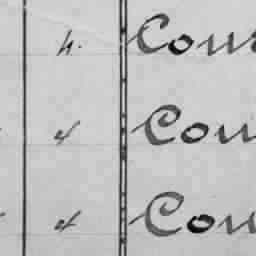 h. Cour
4 Cou
4 Cou